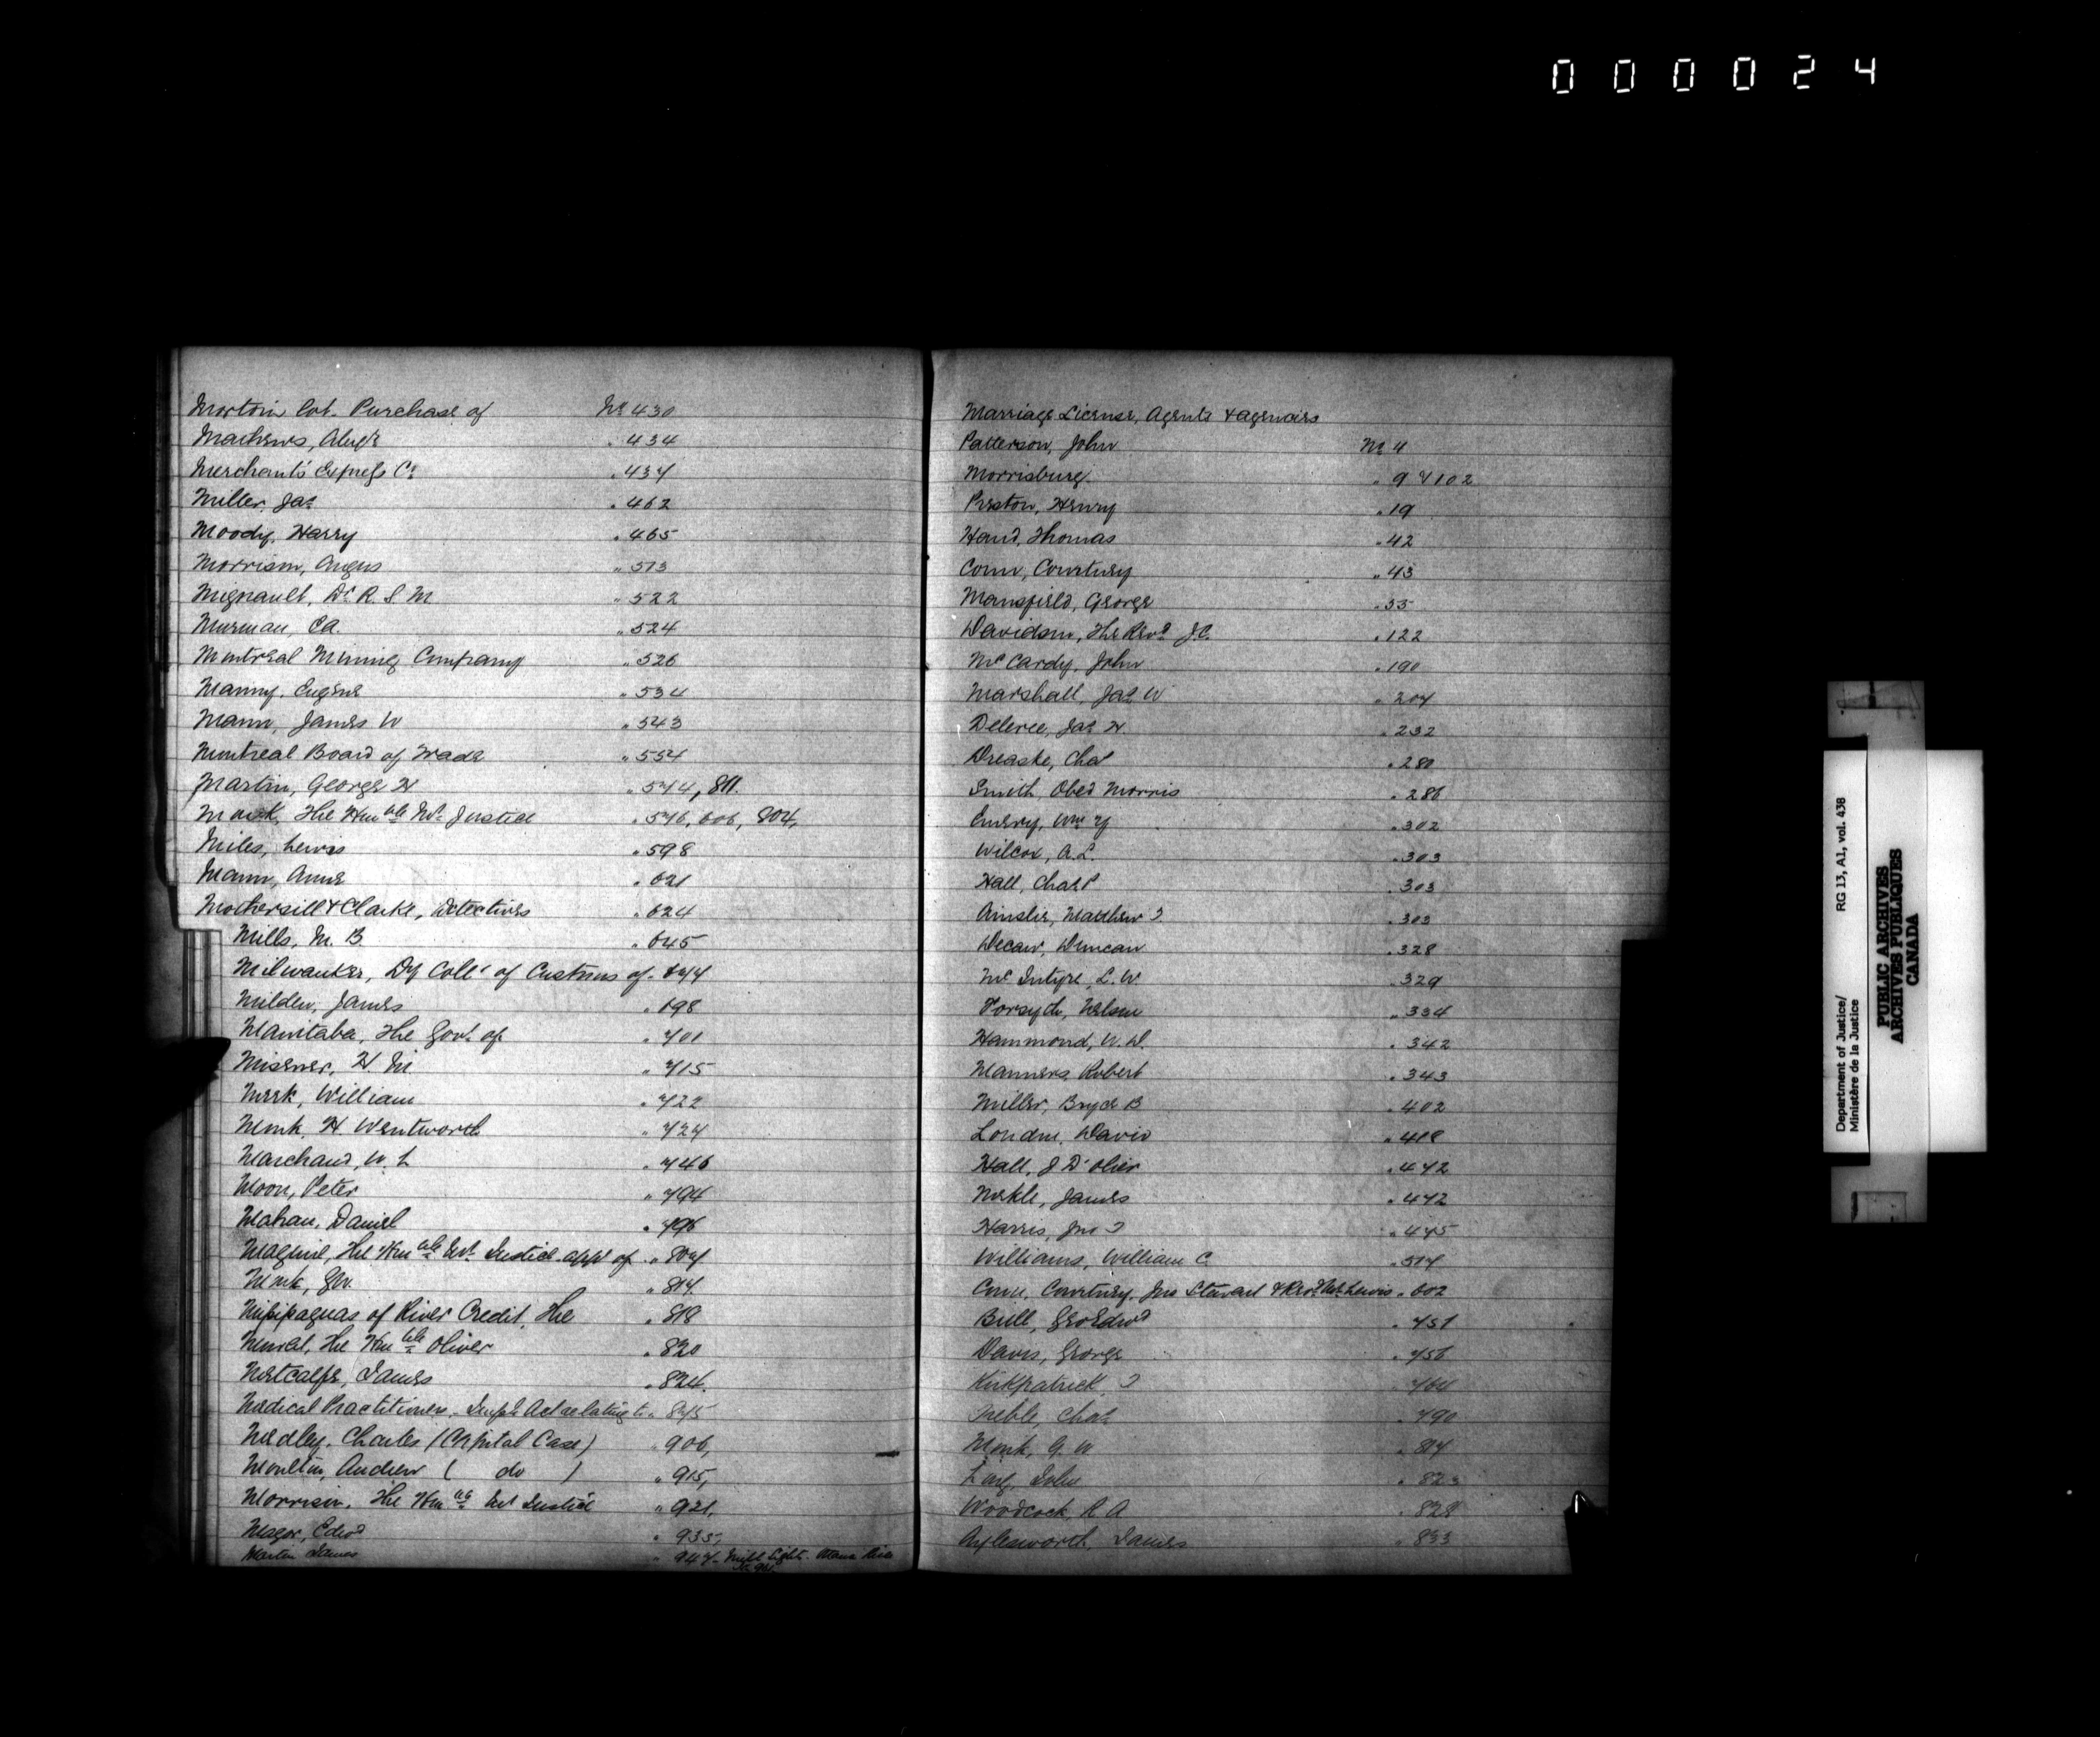 000024
Morton Lot. Purchase of No 430
Mathews, Alexr " 434
Merchants Express Co " 437
Miller, Jas " 462
Moody, Harry " 465
Morrison, Angus " 513
Mignault, Dr R. S. M " 522
Merman, CA. " 524
Montreal Mining Company " 526
Manny, Eugene " 534
Mann, James W " 543
Montreal Board of Trade " 554
Martin, George H " 574, 811.
Monk, The Honble Mr Justice " 576, 606, 804,
Miles, Lewis " 598
Mann, Anne " 621
Mothersill & Clarke, Detectives " 624
Mills, M. B " 645
Milwaukee, Dy Collr of Customs of - 677
Milden, James " 698
Manitaba, The Govt of " 701
Misener, H. M. " 715
Meek, William " 722
Monk, H. Wentworth " 727
Marchand, W. L " 746
Moon, Peter " 794
Mahan, Daniel " 796
Maguire, The Honble Mr Justice appt of " 807
Monk, GW. " 814.
Missisaguas of River Credit, The " 818
Mowat, The Honble Oliver " 820
Metcalfe, James " 824.
Medical Practitioners, Impl Act relating to " 875
Medley, Charles (Capital Case) " 906,
Moulton, Andrew ( do ) " 915,
Morrison, The Honble Mr Justice " 921,
Magor, Edwd " 935,
Martin James " 947 - Mill Light. Ottawa River
Marriage License, Agents & agencies
Patterson, John No 4
Morrisburg " 9 & 102
Preston, Henry " 19
Hand, Thomas " 42
Conn, Courtney " 43
Mansfield, George " 55
Davidson, The Revd J.C. " 122
McCardy, John " 190
Marshall, Jas W " 207
Deleree, Jas H " 232
Dreaske, Chas " 280
Smith, Obed Morris " 286
Emery, Wm Y " 302
Wilcox, A.L. " 303
Hall, Chas P " 303
Ainslie, Matthew J " 303
Decaw, Duncan " 328
McIntyre, L. W. " 329
Forsyth, Nelson " 334
Hammond, W. D. " 342
Manners, Robert " 343
Miller, Bryce B " 402
London, David " 418
Hall, J D'olier " 472
Mekle, James " 472
Harris, Jno J " 475
Williams, William C. " 517
Conn, Courtney, Jno Stewart & Revd Mr Lewis " 602
Bull, Geo Edwd " 751
Davis, George " 756
Kirkpatrick, J " 764
Treble, Chas " 790
Monk, G. W " 814
Long, John " 823
Woodcock, R A " 828
Aylesworth, James " 833
Department of Justice/ RG 13, A1, vol. 438
Ministère de la Justice
PUBLIC ARCHIVES
ARCHIVES PUBLIQUES
CANADA